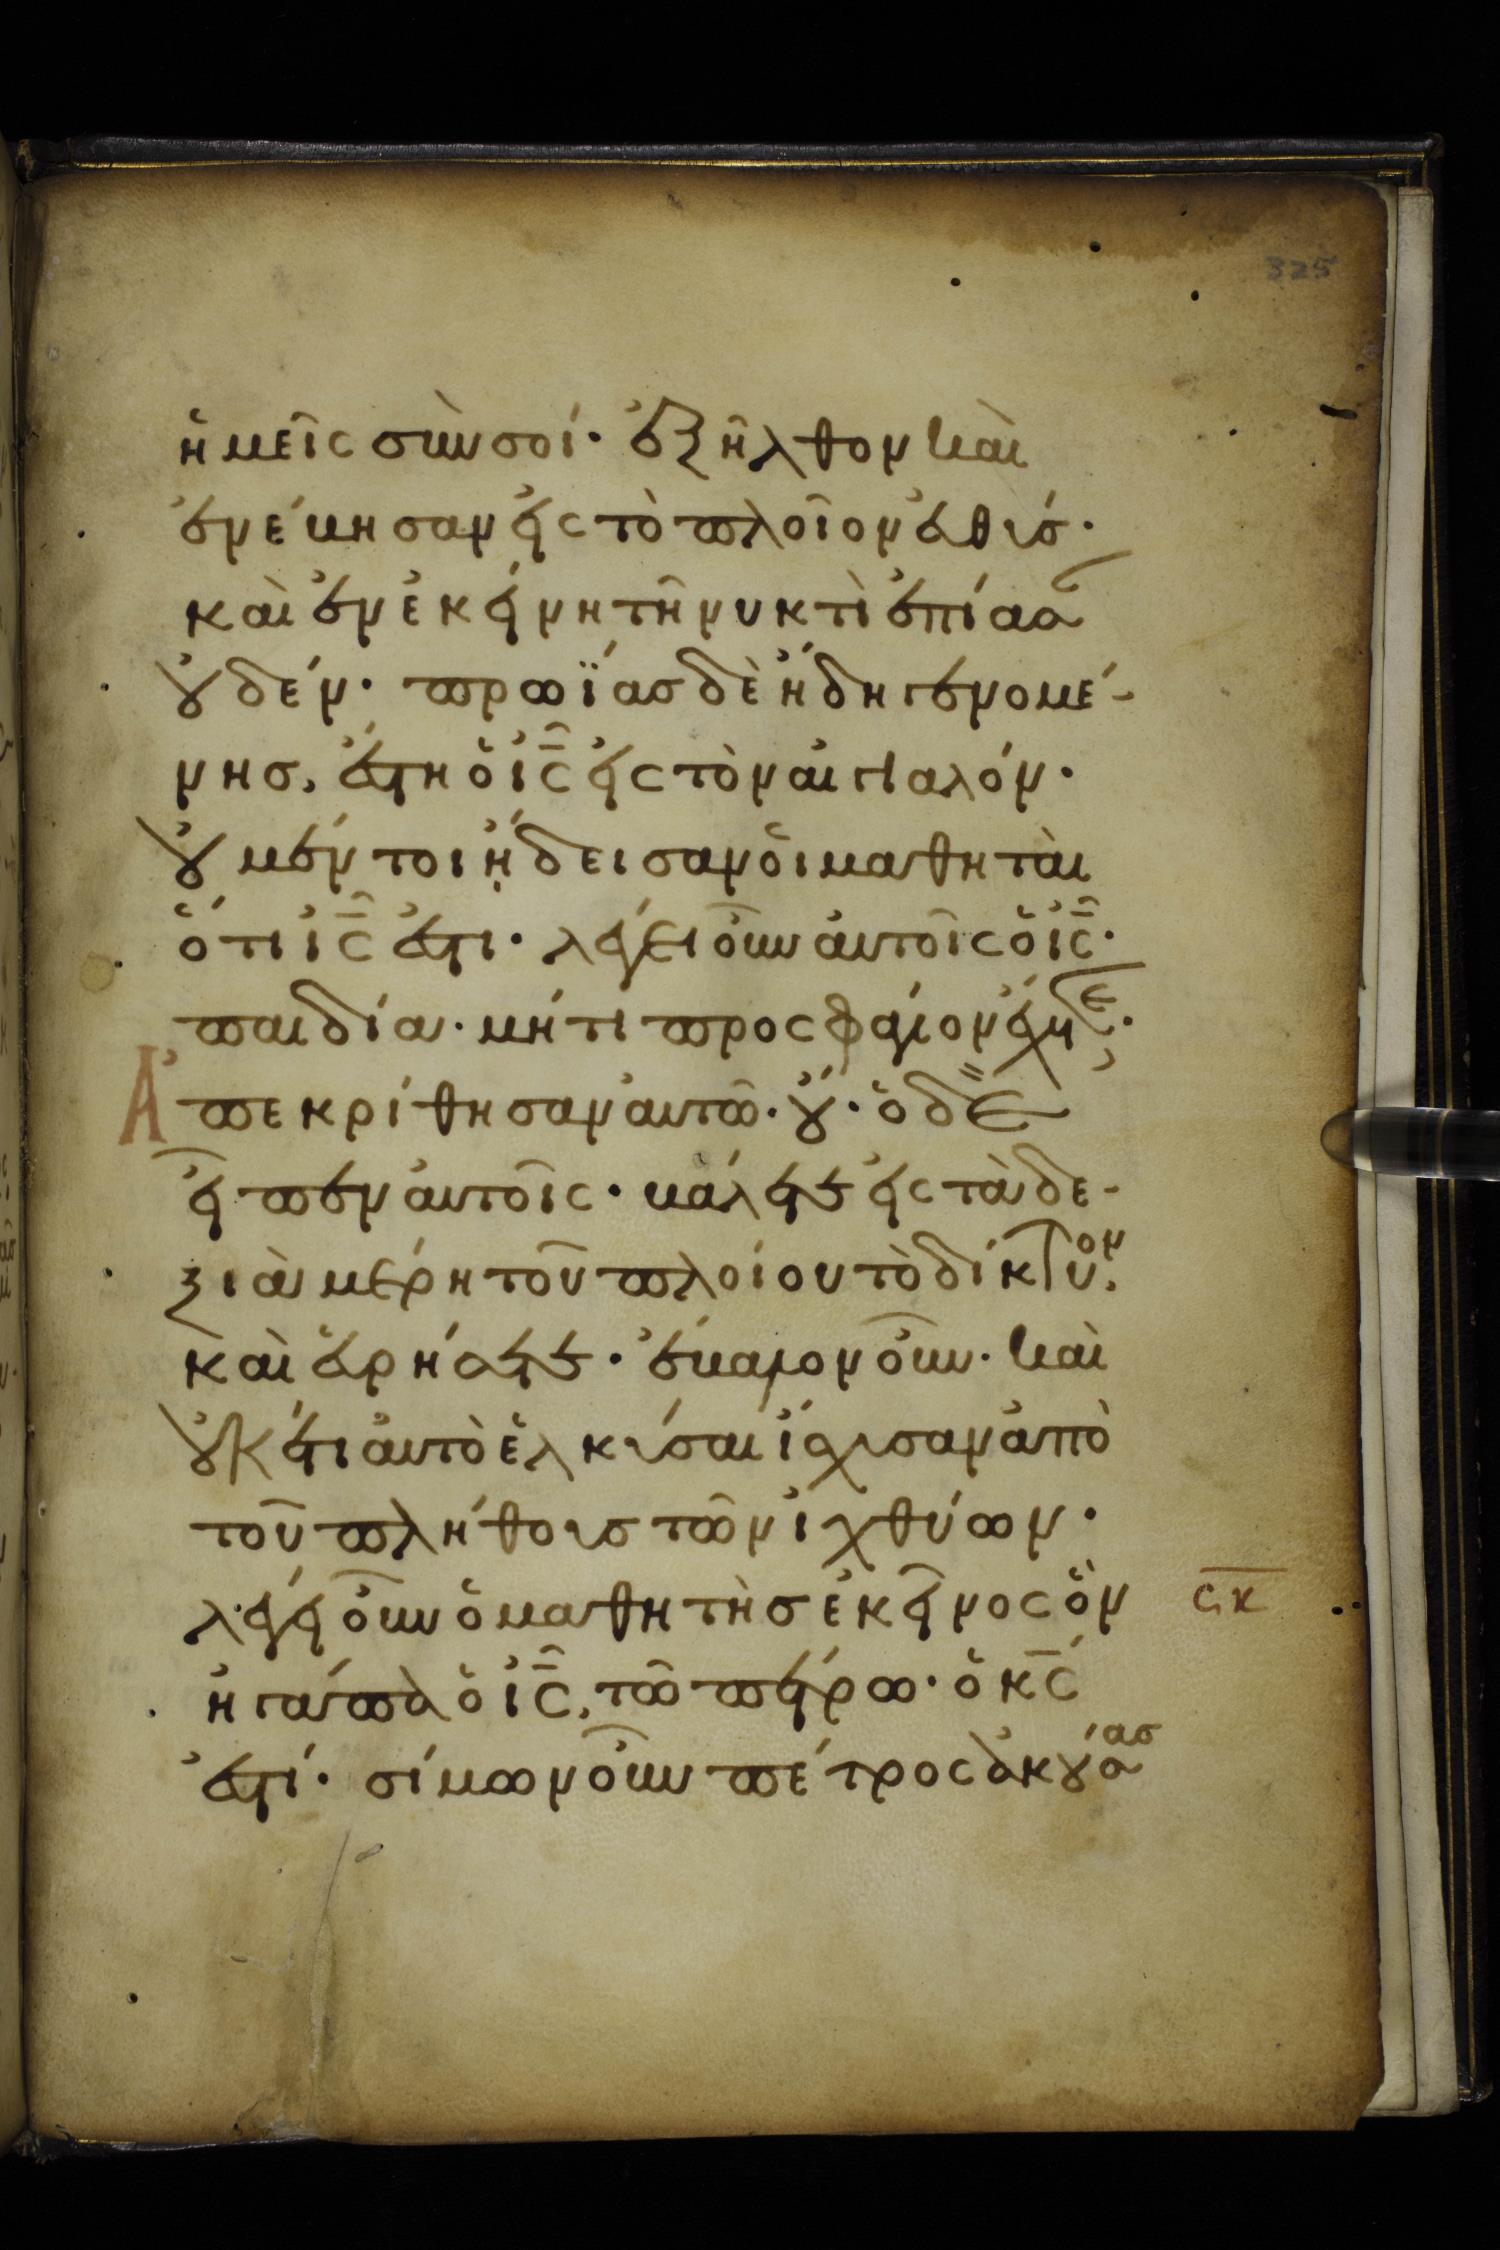 325
ἡμεῖς σὺν σοί· ἐξῆλθον καὶ
ἐνέβησαν εἰς τὸ πλοῖον εὐθύς·
καὶ ἐν ἐκείνη τῆ νυκτὶ ἐπίασαν
οὐδέν· πρωΐας δὲ ἤδη γενομέ-
νης, ἔστη ὁ ἰς εἰς τὸν αἰγιαλόν·
οὐ μέντοι ᾔδεισαν οἱ μαθηταὶ
ὅτι ἰς ἐστι· λέγει οὖν αὐτοῖς ὁ ἰς·
παιδία· μή τι προσφάγιον ἔχετε·
Ἀπεκρίθησαν αὐτῶ· οὔ· ὁ δὲ
εἶπεν αὐτοῖς· βάλετε εἰς τὰ δε-
ξιὰ μέρη τοῦ πλοίου τὸ δίκτυον,
καὶ εὑρήσετε· ἔβαλον οὖν· καὶ
οὐκέτι αὐτὸ ἑλκύσαι ἴσχυσαν ἀπὸ
τοῦ πλήθους τῶν ἰχθύων·
λέγει οὖν ὁ μαθητὴς ἐκεῖνος ὃν
σκ
ἠγάπα ὁ ἰς, τῶ πέτρω· ὁ κς
ἐστί· σίμων οὖν πέτρος ἀκούσας